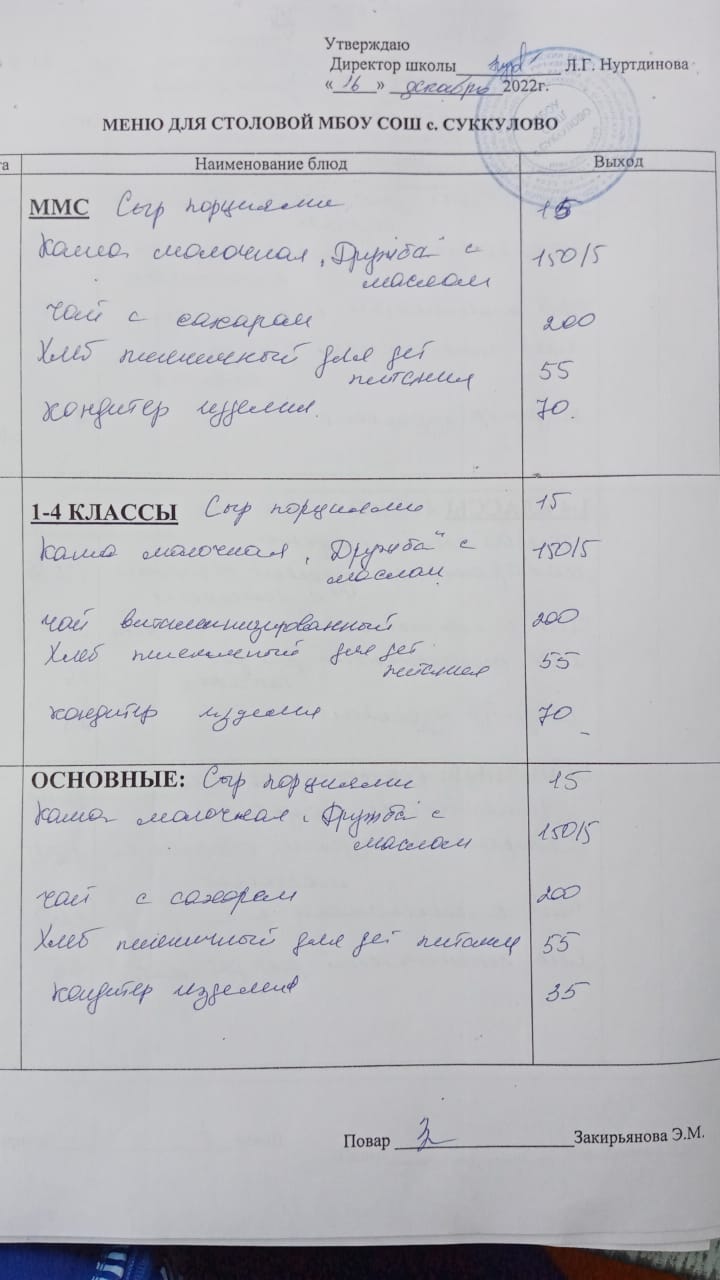 Утверждаю
Директор школы Л.Г. Нуртдинова
«16» декабрь 2022г.
МЕНЮ ДЛЯ СТОЛОВОЙ МБОУ СОШ с. СУККУЛОВО
та Наименование блюд Выход
ММС Сыр порциями 15
Каша молочная "Дружба" с 150/5
маслом
Чай с сахаром 200
Хлеб пшеничный для дет
питания 55
кондитер изделия. 70.
1-4 КЛАССЫ Сыр порциями 15
Каша молочная "Дружба" с 150/5
маслом
Чай витаминизированный 200
Хлеб пшеничный для дет 55
питания
кондитер изделия 70
ОСНОВНЫЕ: Сыр порциями 15
Каша молочная "Дружба" с 150/5
маслом
Чай с сахаром 200
Хлеб пшеничный для дет питания 55
кондитер изделия 35
Повар Закирьянова Э.М.